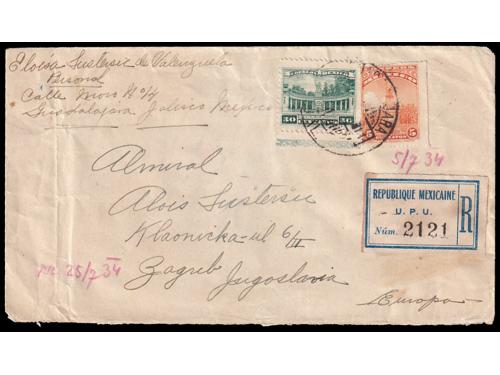 Eloisa Sustersic de Valenzuela
Calle Moro No
Guadalajara Jalisco Mexico
CORREOS MEXICO
30 30
5
ARA
5/7 34
Almiral
Alois Sustersic
Klaonička-ul 6/II
Zagreb Jugoslavia
Europa
REPUBLIQUE MEXICAINE
U. P. U.
Núm. 2121
R
25/7 34